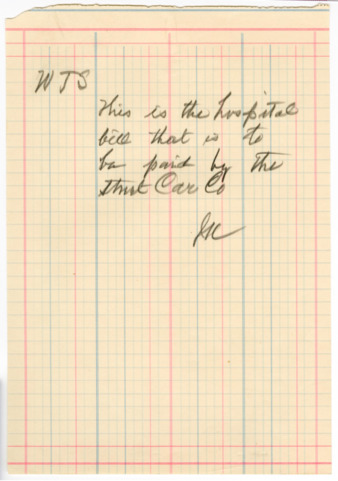 WTS
This is the hospital
bill that is to
be paid by the
Strut Car Co